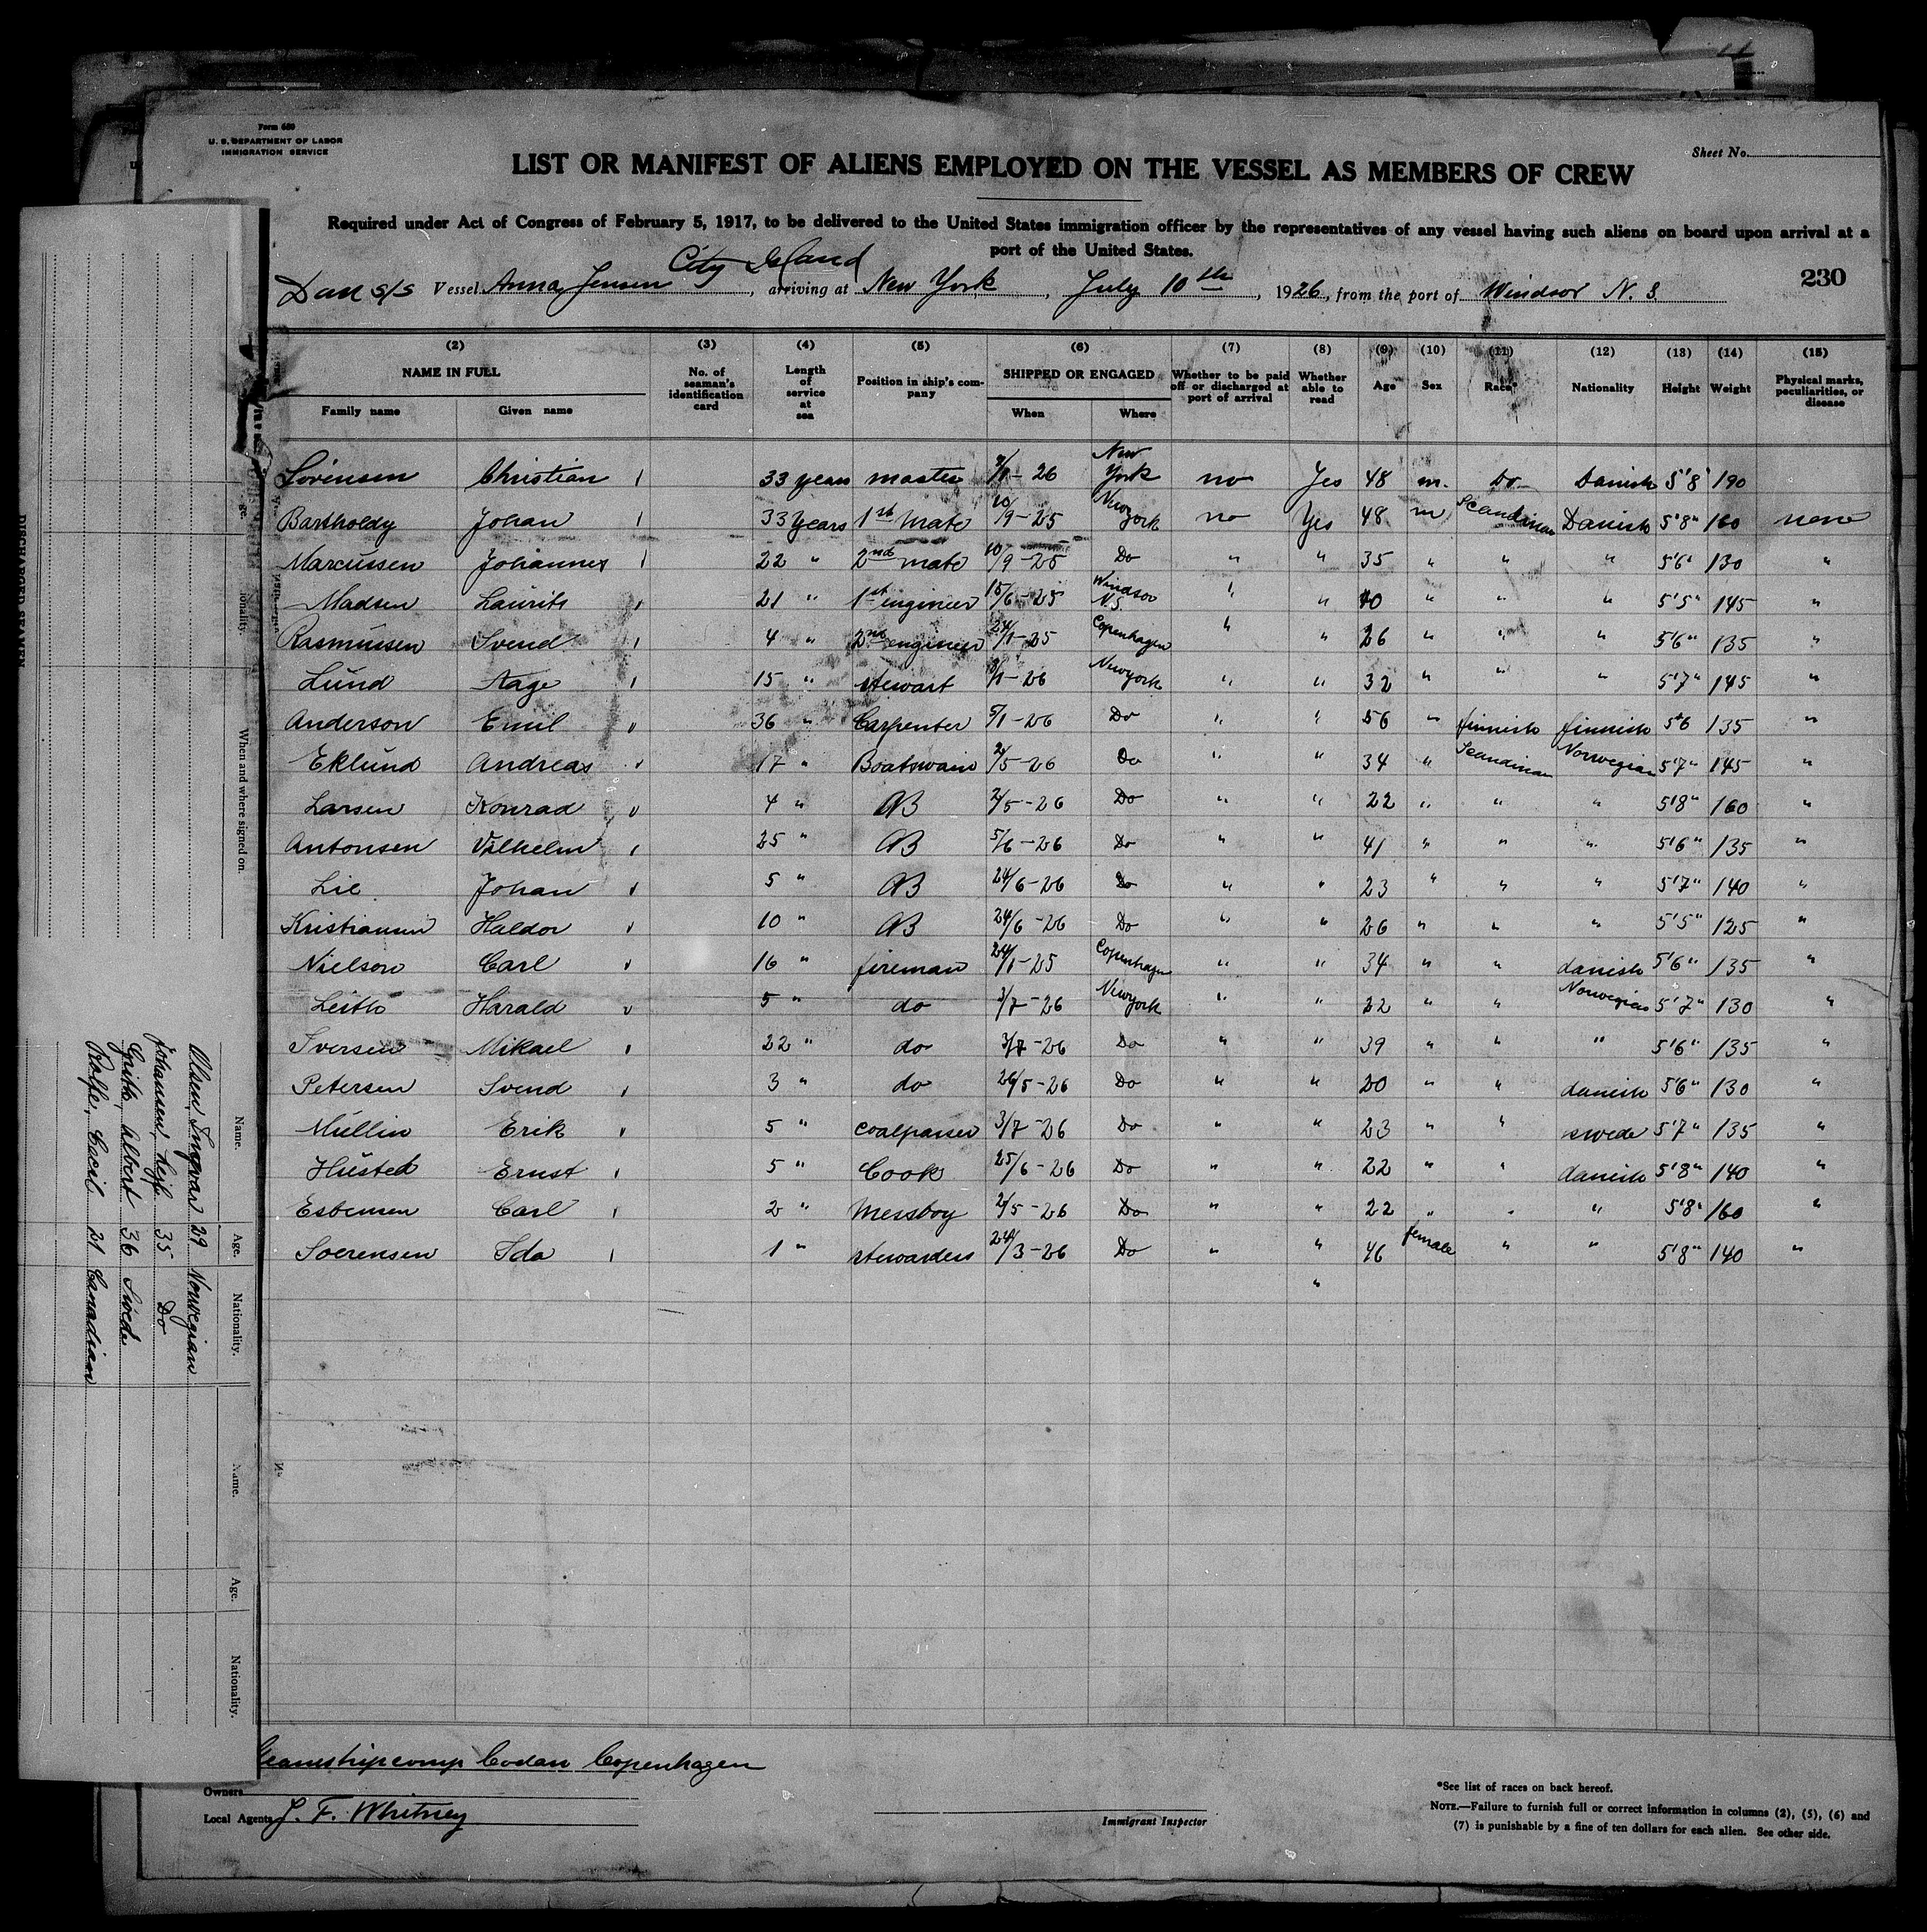 Form 680
U. S. DEPARTMENT OF LABOR
IMMIGRATION SERVICE
Sheet No.
LIST OR MANIFEST OF ALIENS EMPLOYED ON THE VESSEL AS MEMBERS OF CREW
Required under Act of Congress of February 5, 1917, to be delivered to the United States immigration officer by the representatives of any vessel having such aliens on board upon arrival at a
port of the United States.
City Island
230
Dan S/S Vessel Anna Jensen, arriving at New York, July 10th, 1926, from the port of Windsor N. S.
(2) (3) (4) (5) (6) (7) (8) (9) (10) (11) (12) (13) (14) (15)
NAME IN FULL Family name Given name No. of seaman's identification card Length of service at sea Position in ship's company SHIPPED OR ENGAGED When Where Whether to be paid off or discharged at port of arrival Whether able to read Age Sex Race* Nationality Height Weight Physical marks, peculiarities, or disease
Sörensen Christian 33 years master 26 New York no Yes 48 m. Do Danish 5'8 190
Bartholdy Johan 33 Years 1st Mate 10/9-25 New York no Yes 48 m Scandinav Danish 5'8" 160 none
Marcussen Johannes 22 " 2nd mate 10/9-25 Do " " 35 " " " 5'6" 130 "
Madsen Laurits 21 " 1st engineer 15/6-25 Windsor N.S. " " 40 " " " 5'5" 145 "
Rasmussen Svend 4 " 2nd engineer 24/1-25 Copenhagen " " 26 " " " 5'6" 135 "
Lund Aage 15 " stewart 8/1-26 New york " " 32 " " " 5'7" 145 "
Anderson Emil 36 " Carpenter 5/1-26 Do " " 56 " finnish finnish 5'6 135 "
Eklund Andreas 17 " Boatswain 2/5-26 Do " " 34 " Scandinav Norwegian 5'7" 145 "
Larsen Konrad 4 " AB 2/5-26 Do " " 22 " " " 5'8" 160 "
Antonsen Vilhelm 25 " AB 5/6-26 Do " " 41 " " " 5'6" 135 "
Lie Johan 5 " AB 24/6-26 Do " " 23 " " " 5'7" 140 "
Kristiansen Haldor 10 " AB 24/6-26 Do " " 26 " " " 5'5" 125 "
Nielson Carl 16 " fireman 24/1-25 Copenhagen " " 34 " " danish 5'6" 135 "
Leith Harald 5 " do 3/7-26 New york " " 22 " " Norwegian 5'7" 130 "
Iversen Mikael 22 " do 3/7-26 Do " " 39 " " " 5'6" 135 "
Petersen Svend 3 " do 26/5-26 Do " " 20 " " danish 5'6" 130 "
Müllin Erik 5 " coalpasser 3/7-26 Do " " 23 " " swede 5'7" 135 "
Husted Ernst 5 " Cook 25/6-26 Do " " 22 " " danish 5'8" 140 "
Esbensen Carl 2 " Messboy 2/5-26 Do " " 22 " " " 5'8" 160 "
Soerensen Ida 1 " stewardess 24/3-26 Do " " 46 female " " 5'8" 140 "
"
Steamshipcomp Codan Copenhagen
Owners
Local Agents J. F. Whitney
Immigrant Inspector
*See list of races on back hereof.
NOTE.—Failure to furnish full or correct information in columns (2), (5), (6) and
(7) is punishable by a fine of ten dollars for each alien. See other side.
DISCHARGED SEAMEN
When and where signed on.
Name. Age. Nationality. Name. Age. Nationality.
Olsen, Ingvar 29 Norwegian
Johansen, Leif 35 Do
Grith, Albert 36 Swede
Rolfe, Cecil 21 Canadian